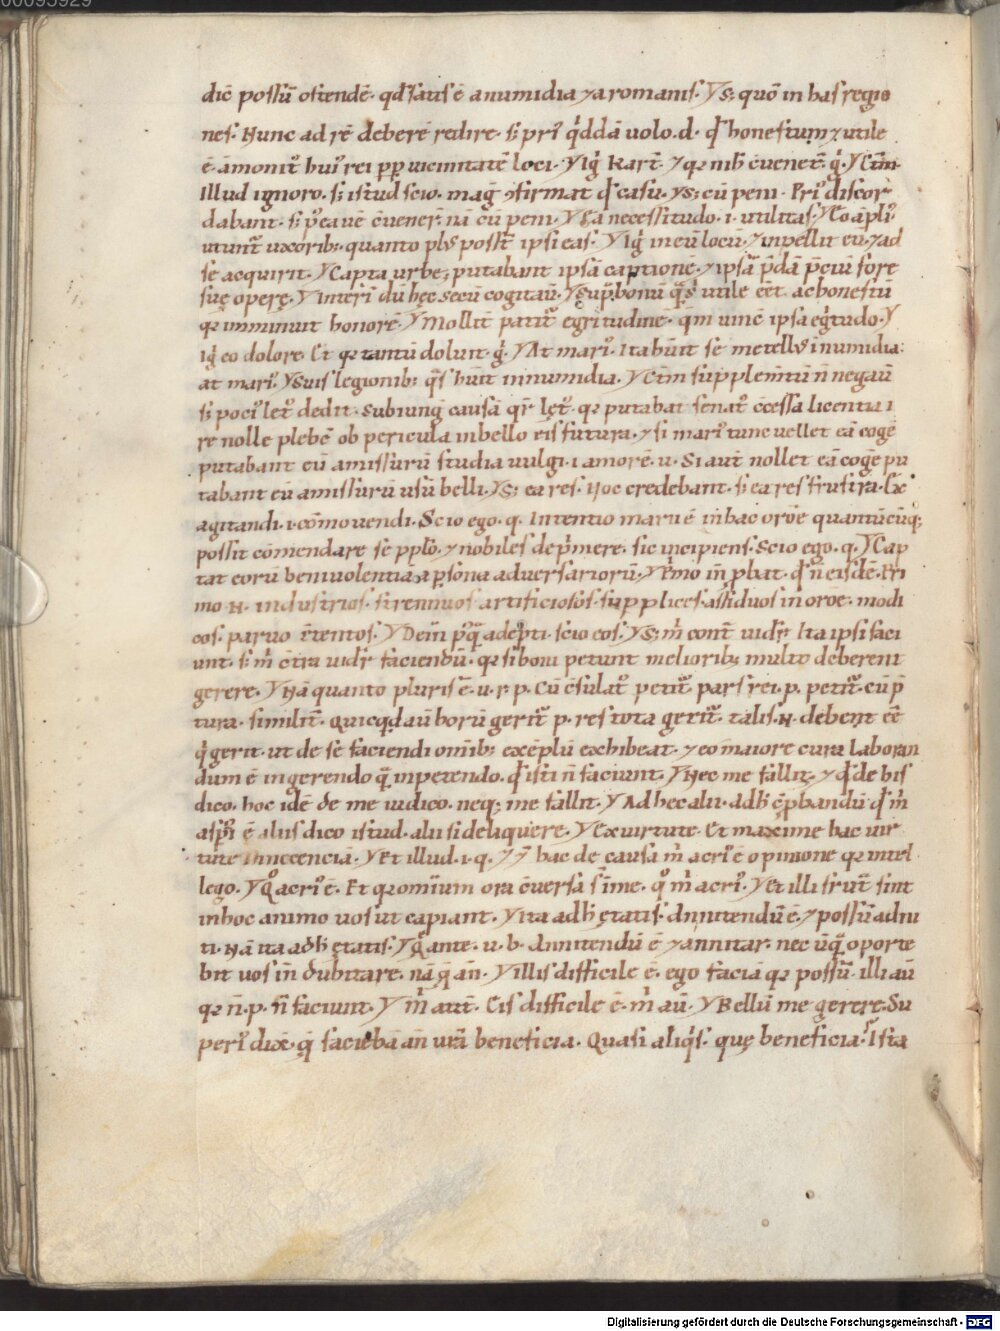 00095929
dicē possū ostendē· qd̄ satis ē a numidia ⁊ a romanis· Ƴ S; quō in has regio
nes· Hunc ad rē deberē redire· s; pri᷒ q̇ddā uolo·d· q̄ honestum ⁊ utile
ē āmonit᷒ hui᷒ rei ꝓp̄ uicinitatē loci· Ƴ Ig̃ Kart̄· ⁊ qr nih̄ c̄uenet̄· g̃· Ƴ Ct̄m
Illud ignoro· s; istud scio· mag̃ ꝯfirmat q̄ casu· Ƴ S; cū peni· Pri᷒ discor
dabant· s; p̄ea uē c̄uener̄· nā cū peni· Ƴ Ea necessitudo· i· utilitas· Ƴ Eo āpli᷒
utunt᷒ uxorib;· quanto pl᷒ poss̄t ipsi eas· Ƴ Ig̃ in eū locū· ⁊ inpellit eū· ⁊ ad
se acquirit· Ƴ Capta urbe; putabant ipsā captionē· ⁊ ipsā p̄dā p̄ciū fore
suę operę· Ƴ Interī dū hęc secū cogitaū· Ƴ Sup̄ bonū q̄s utile eēt ac honestū
qr imminuit honorē· Ƴ Mollit̄ patit᷒ egritudinē· qm̄ uinc̄ ipsa eg̃tudo· Ƴ
Ig̃ eo dolore· Et qr tantū doluit· g̃· Ƴ At mari᷒· Ita hūit se metell᷒ i numidia·
at mari᷒· Ƴ Suis legionib; q̄s hūit in numidia· Ƴ Ct̄m supplem̄tū n̄ negaū
s; poci᷒ let᷒ dedit· Subiung̃ causā qr̄ lęt᷒· qr putabat senat᷒ c̄cessa licentia i
re nolle plebē ob pericula in bello eis futura· ⁊ si mari᷒ tunc uellet eā cogē
putabant eū amissurū studia uulgi· i amorē·u· Si aut̄ nollet eā cogē pu
tabant eū amissurū usū belli· Ƴ S; ea res· Hoc credebant· s; ea res frustra· Ex
agitandi· i· cōmouendi· Scio ego·q· Intentio marii ē in hac or̄oe quantūcūq;
possit cōmendare se pp̄lo· ⁊ nobiles dep̄mere· sic incipiens· Scio ego·q· Ƴ Cap
tat eorū beniuolentiā a p̄sona aduersariorū· Ƴ P̄mo in̄ p̄bat· q̄ n̄ eisdē· Pri
mo·N· industrios· strennuos artificiosos· supplices· assiduos in or̄oe· modi
cos· paruo c̄tentos· Ƴ Dein̄ p̄q̄ adepti· scio eos· Ƴ S; m̄ cont̄ uid̄r· Ita ipsi faci
unt· s; m̄ c̄tra uid̄r faciendū· qr si boni petunt meliorib; multo deberent
gerere· Ƴ Nā quanto pluris ē·u·r·p· Cū c̄sulat᷒ petit᷒ pars rei·p· petit᷒· cū p̄
tura· similit̄· Quicq̇d aū horū gerit᷒ p· res tota gerit᷒· talis·N· debent eē
q̇ gerit· ut de se faciendi om̄ib; exēplū exhibeat· ⁊ eo maiore cura laboran
dum ē in gerendo q̄ in petendo· q̄ isti n̄ faciunt· Ƴ Nec me fallit· ⁊ q̄ de his
dico· hoc idē de me iudico· neq; me fallit· Ƴ Ad hec alii· adh̄ c̄p̄bandū q̄ m̄
asp̄i᷒ ē aliis dico istud· alii si deliquere· Ƴ Ex uirtute· Et maxime hac uir
tute innocenciā· Ƴ Et illud·i·q· ⁊ hac de causa m̄ acri᷒ ē opinione qr intel
lego· Ƴ Q̇ acri᷒ ē· Et qr omnium ora c̄uersa s̄ in me· q̇ m̄ acri᷒· Ƴ Et illi frut̄ sint
in hoc animo uos ut capiant· Ƴ Ita adh̄ ętatis· annitendū ē· ⁊ possū adni
ti· Nā ita adh̄ ętatis· Ƴ Q̄ ante·u·b· annitendū ē ⁊ annitar· nec ūq̄ oporte
bit uos in̄ dubitare· nā q̄ an̄· Ƴ Illis difficile ē· ego faciā qr possū· illi aū
qr n̄·p· n̄ faciunt· Ƴ m̄ aut̄· Eis difficile ē· m̄ aū· Ƴ Bellū me gerere· Su
peri᷒ dix̄· q̄ faciebā an̄ ur̄a beneficia· Quasi aliq̇s· quę beneficia? Ista
Digitalisierung gefördert durch die Deutsche Forschungsgemeinschaft - DFG